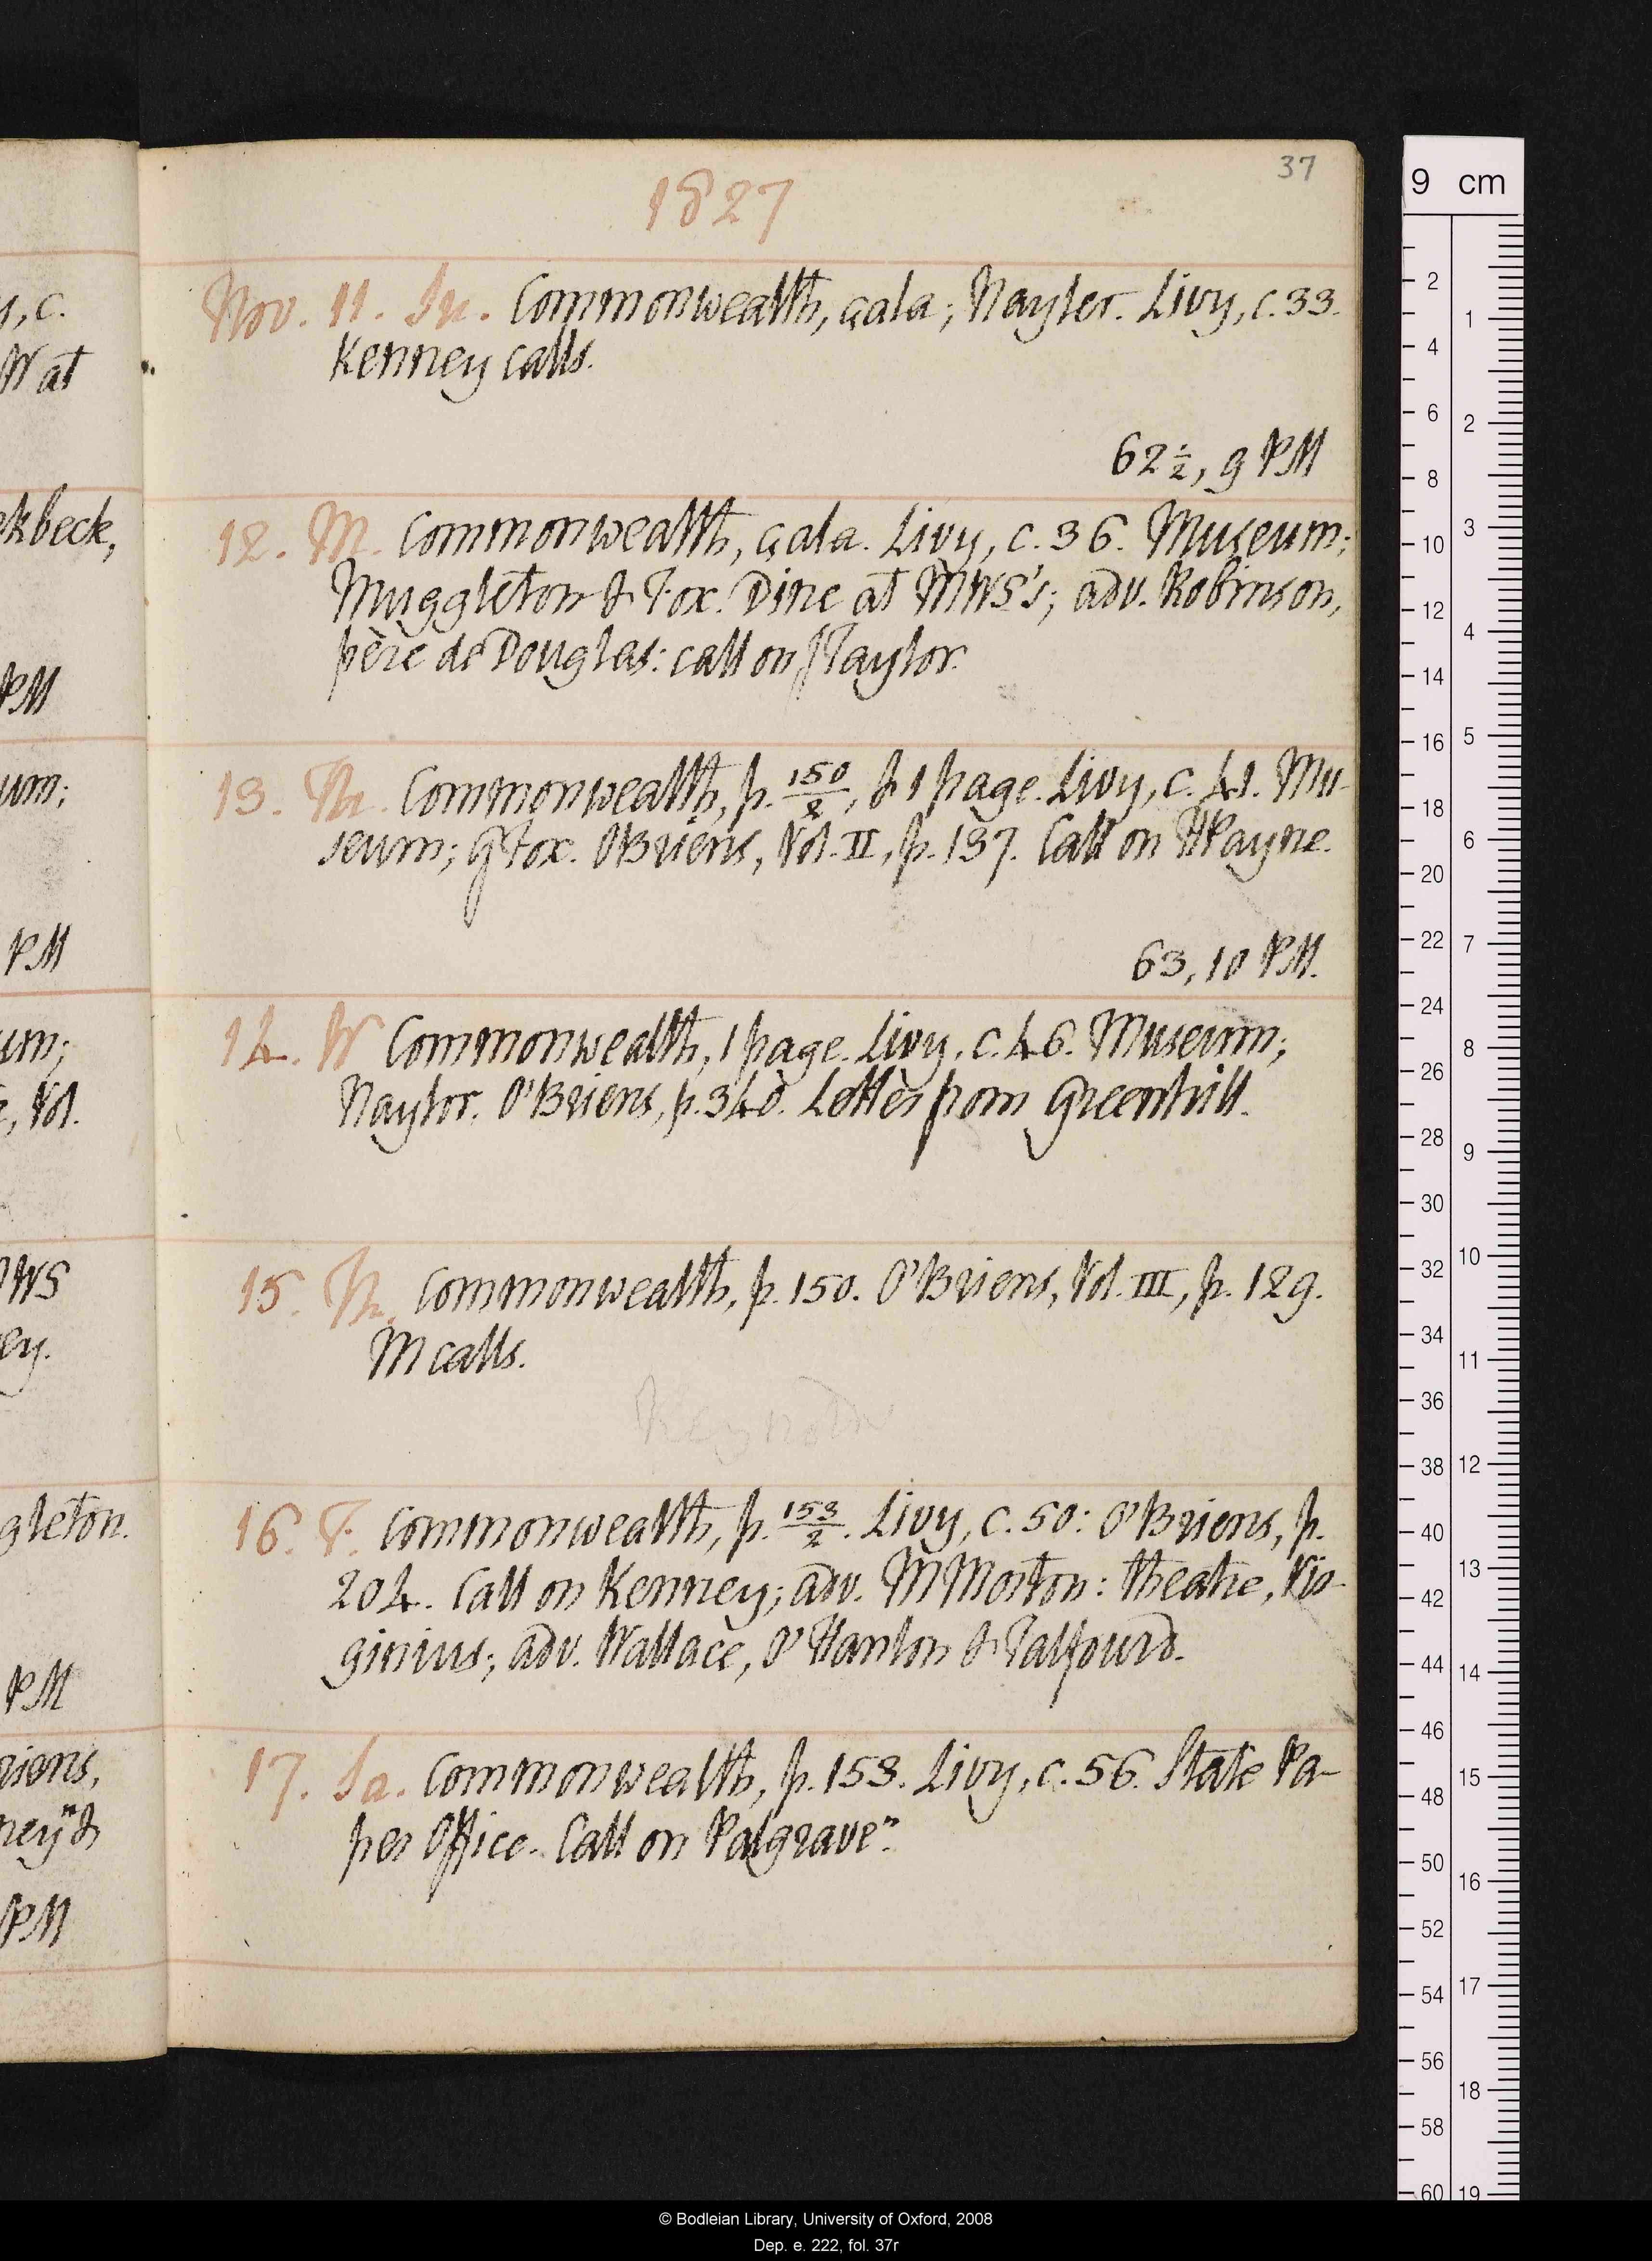 37
1827
Nov. 11. Su. Commonwealth, çala; Nayler. Livy, c. 33.
Kenney calls.
62 1/2, 9 PM
12. M. Commonwealth, çala. Livy, c. 36. Museum;
Muggleton & Fox. Dine at MWS's; adv. Robinson,
père de Douglas: call on JTaylor.
13. Tu. Commonwealth, p. 150/2, & 1 page. Livy, c. 41. Mu-
seum; GFox. OBriens, Vol. II, p. 137. Call on HPayne.
63, 10 PM.
14. W Commonwealth, 1 page. Livy, c. 46. Museum;
Naylor. O'Briens, p. 340. Letter from Greenhill.
15. Th. Commonwealth, p. 150. O'Briens, Vol. III, p. 129.
M calls.
16. F. Commonwealth, p. 153/2. Livy, c. 50: O'Briens, p.
204. Call on Kenney; adv. M Morton: theatre, Vir-
ginius; adv. Wallace, O'Hanlon & Talfourd.
17. Sa. Commonwealth, p. 153. Livy, c. 56. State Pa-
per Office. Call on Palgrave n.
y, c.
W at
kbeck,
PM
um;
PM
um;
, Vol.
WS
ey.
gleton.
PM
riens,
ney n &
PM
9 cm
2
4
6
8
10
12
14
16
18
20
22
24
26
28
30
32
34
36
38
40
42
44
46
48
50
52
54
56
58
60
1
2
3
4
5
6
7
8
9
10
11
12
13
14
15
16
17
18
19
© Bodleian Library, University of Oxford, 2008
Dep. e. 222, fol. 37r